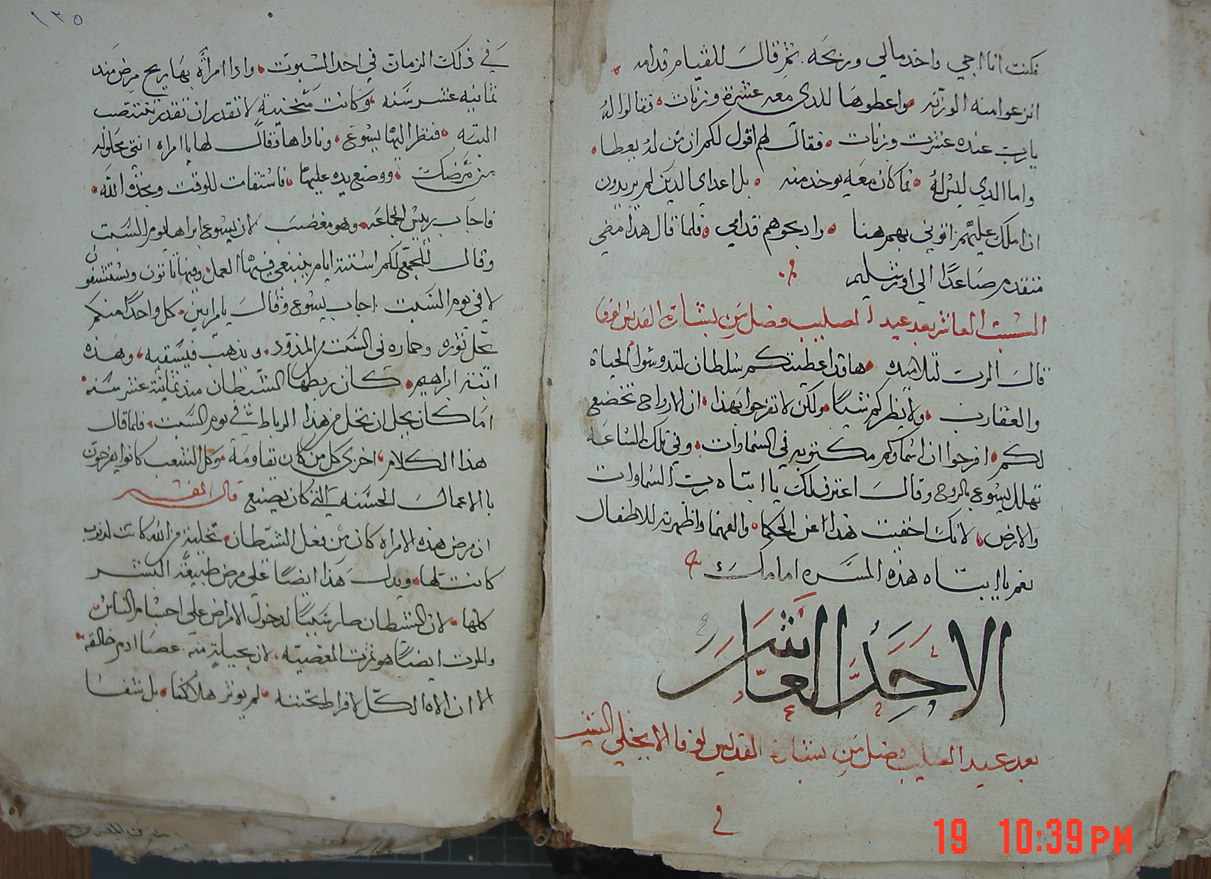 فكنت انا اجي واخد مالي وربحه ثم قال للقيام قدامه
انزعوا منه الوزنه واعطوها للدي معه عشرة وزنات فقالوا له
يارب عنده عشرت وزنات فقال لهم اقول لكم ان من له يعطا
واما الدي ليس له فما كان معه يوخد منه بل اعداي الدين لم يريدون
ان املك عليهم اتوني بهم هنا وادبحوهم قدامي فلما قال هذا مضي
متقدم صاعدًا الي اورشليم
السبت العاشر بعد عيد الصليب فصل من بشارة القديس لوقا
قال الرب لتلاميده هاقد اعطيتكم سلطان لتدوسوا الحياة
والعقارب ولا يضركم شيًا ولكن لا تفرحوا بهذا ان الارواح تخضع
لكم افرحوا ان اسماوكم مكتوبه في السماوات وفي تلك الساعه
تهلل يسوع بالروح وقال اعترف لك يا ابتاه رب السماوات
والارض لانك اخفيت هذا عن الحكما والفهما واظهرته للاطفال
نعم يا ابتاه هذه المسره امامك
الاحد العاشر
بعد عيد الصليب فصل من بشارة القديس لوقا الانجيلي البشير
١٢٥
في ذلك الزمان في احد السبوت وادا امرأه بها ريح مرض مند
ثمانيه عشر سنه وكانت منحنيه لا تقدر ان تنتصب
البته فنظر اليها يسوع وناداها وقال لها يا امراه انتي محلوله
من مرضك ووضع يده عليها فاستقامت للوقت ومجدت الله
فاجاب رييس الجماعه وهو مغضب لان يسوع ابراها يوم السبت
وقال للجمع لكم ستة ايام ينبغي فيها العمل وفيها تاتون وتستشفون
لا في يوم السبت اجاب يسوع وقال يا مرايين كل واحد منكم
يحل ثوره وحماره في السبت من المدود ويدهب فيسقيه وهذه
ابنة ابراهيم كان ربطها الشيطان مند ثمانية عشر سنه
اما كان يحل ان تحل من هذا الرباط في يوم السبت فلما قال
هذا الكلام اخزي كل من كان يقاومه وكل الشعب كانوا يفرحون
بالاعمال الحسنه التي كان يصنع قال المفسر
ان مرض هذه الامراه كان من فعل الشيطان بتخلية من الله كانت لدنوب
كانت لها ويدل هذا ايضًا علي مرض طبيعة البشر
كلها لان الشيطان صار سببًا لدخول الامراض علي اجسام الناس
والموت ايضًا هو ثمرت المعصيه لان بحيلة منه عصا ادم خالقه
الا ان الاه الكل لافراط تحننه لم يوثر هلاكنا بل شفا
19 10:39 PM